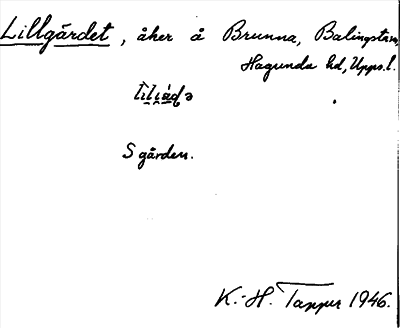 Lillgärdet, åker å Brunna, Balingsta sn,
Hagunda hd, Upps. l.
S gården.
K.-H. Tapper 1946.